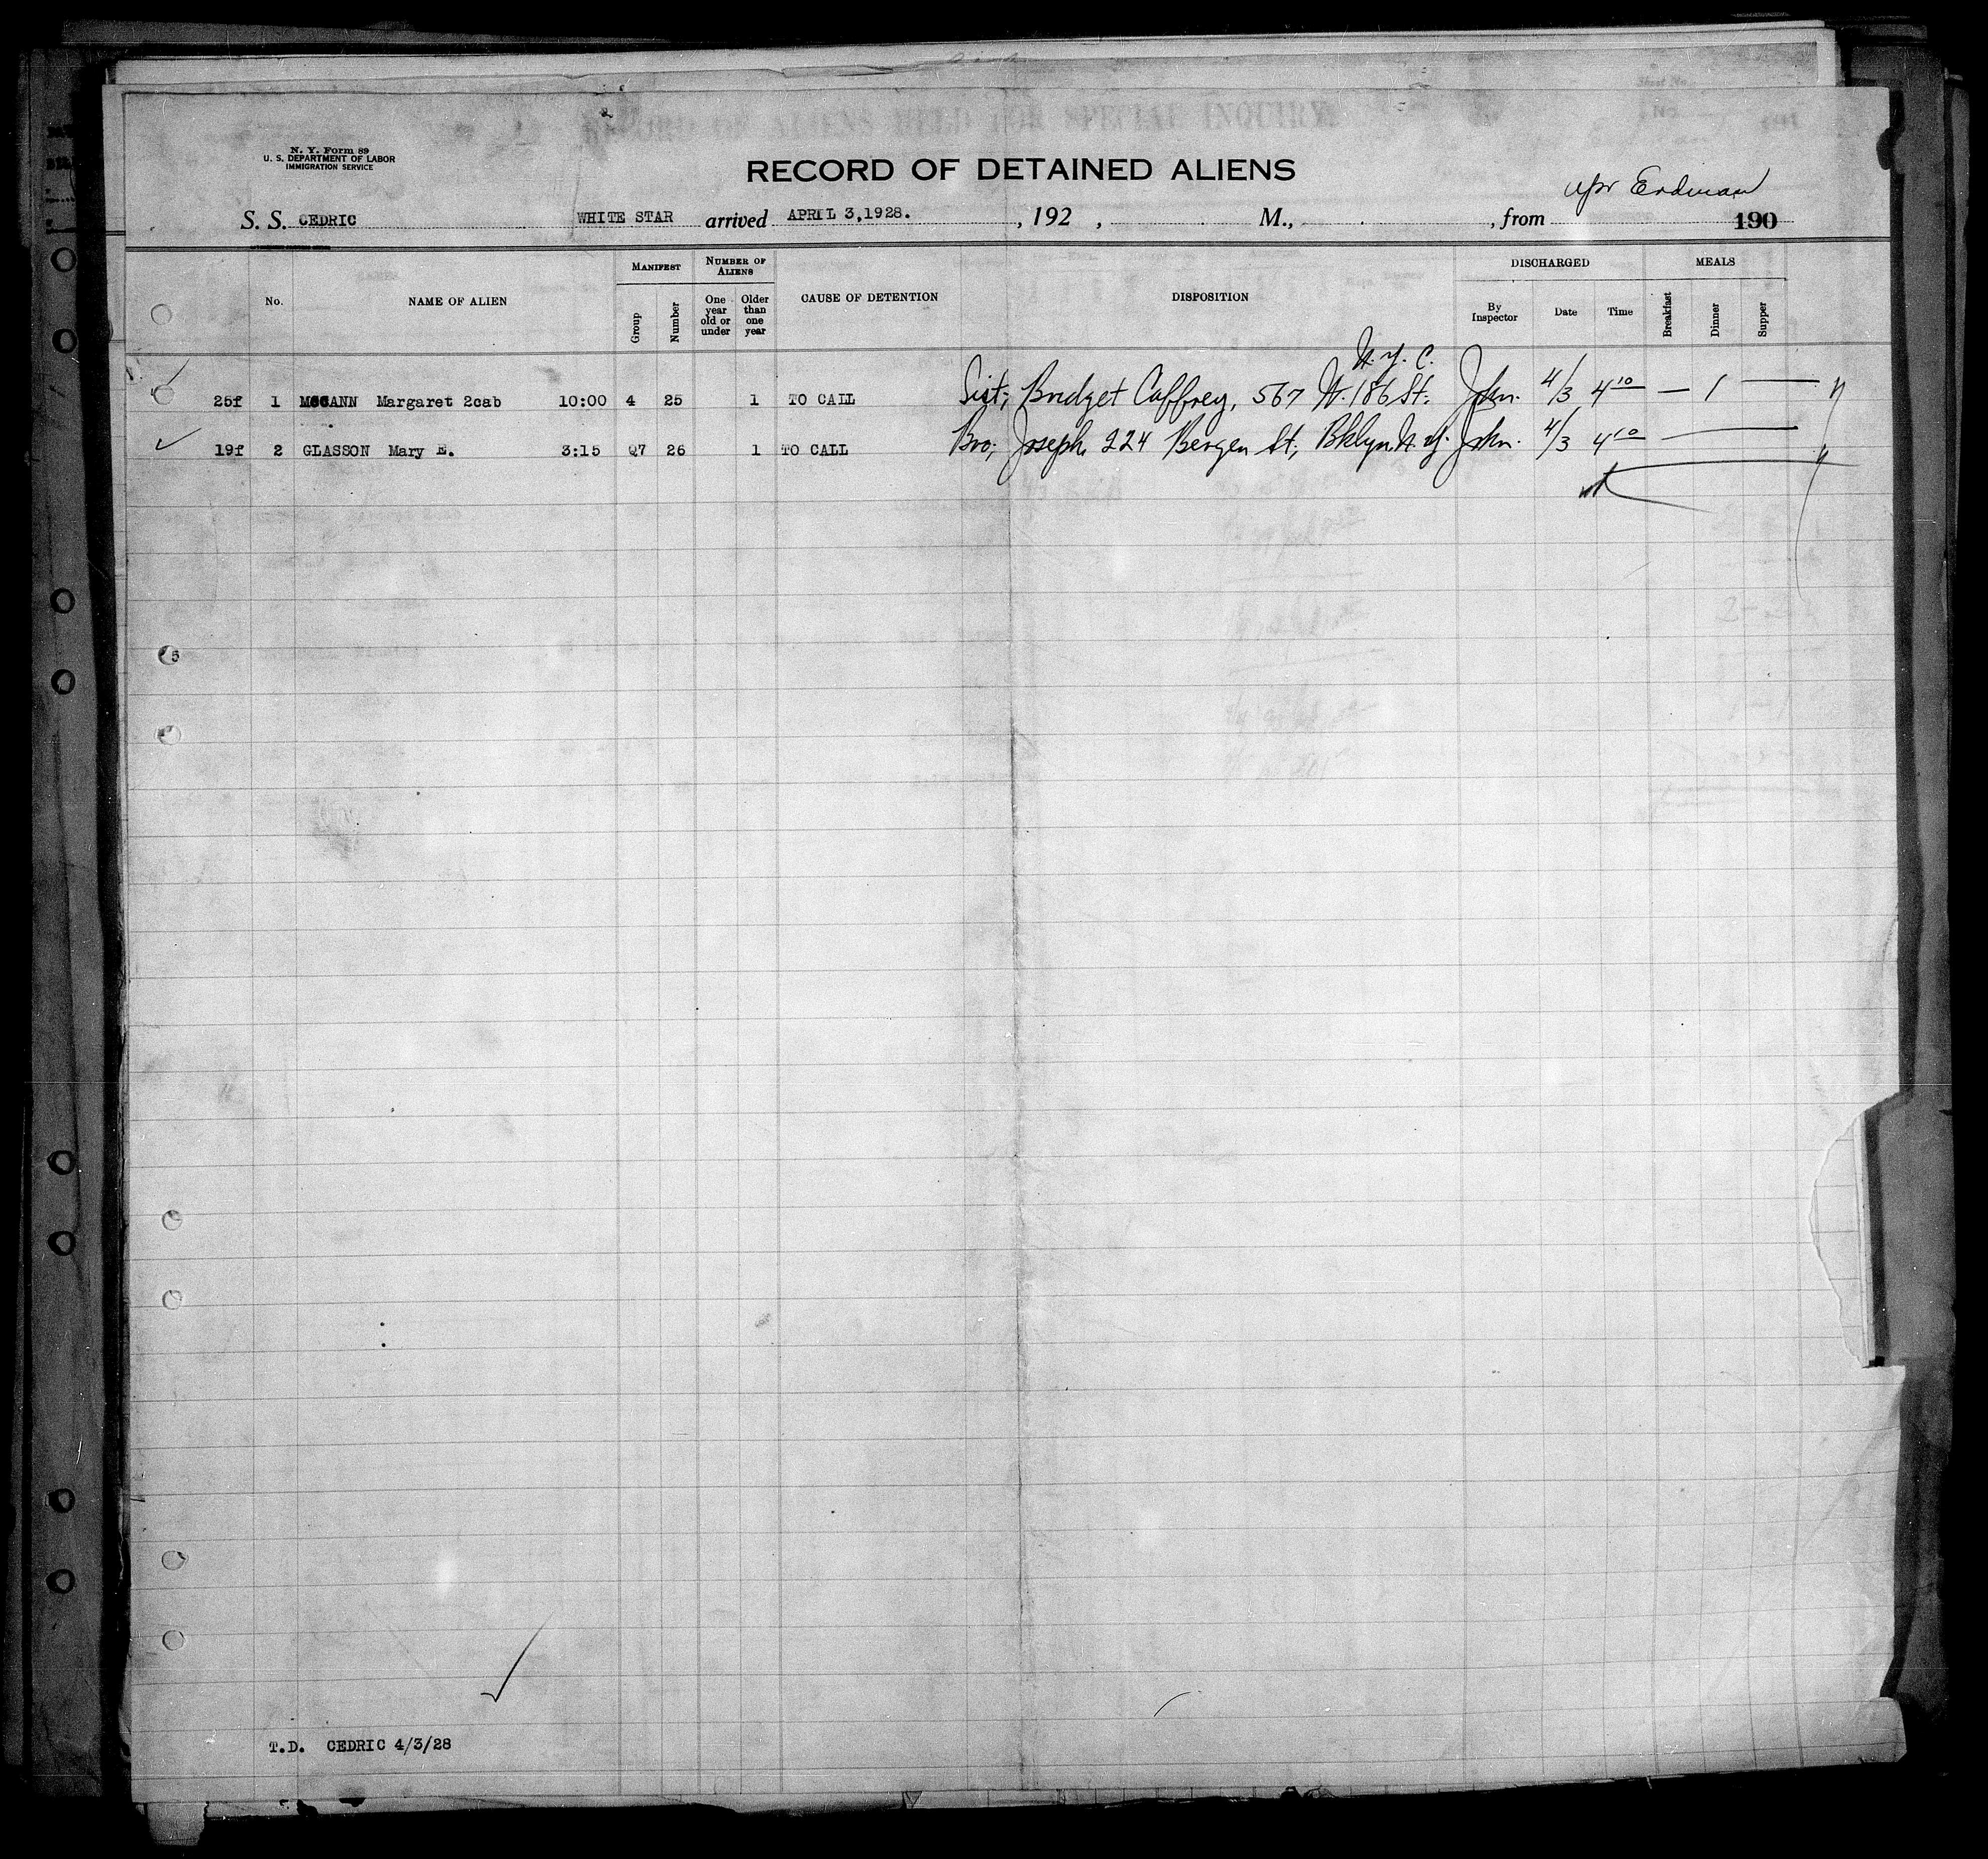 N. Y. Form 89
U. S. DEPARTMENT OF LABOR
IMMIGRATION SERVICE
RECORD OF ALIENS HELD FOR SPECIAL INQUIRY
RECORD OF DETAINED ALIENS
Erdman
S. S. CEDRIC WHITE STAR arrived APRIL 3,1928. , 192 , M., , from 190
No. NAME OF ALIEN MANIFEST Group Number NUMBER OF ALIENS One year old or under Older than one year CAUSE OF DETENTION DISPOSITION DISCHARGED By Inspector Date Time MEALS Breakfast Dinner Supper
N. Y. C.
25f 1 McCANN Margaret 2cab 10:00 4 25 1 TO CALL Sist; Bridget Caffrey, 567 W. 186 St. 4/3 4 10 — 1 —
19f 2 GLASSON Mary E. 3:15 Q7 26 1 TO CALL Bro; Joseph, 224 Bergen St, Bklyn N. Y. 4/3 4 10 —
5
T.D. CEDRIC 4/3/28